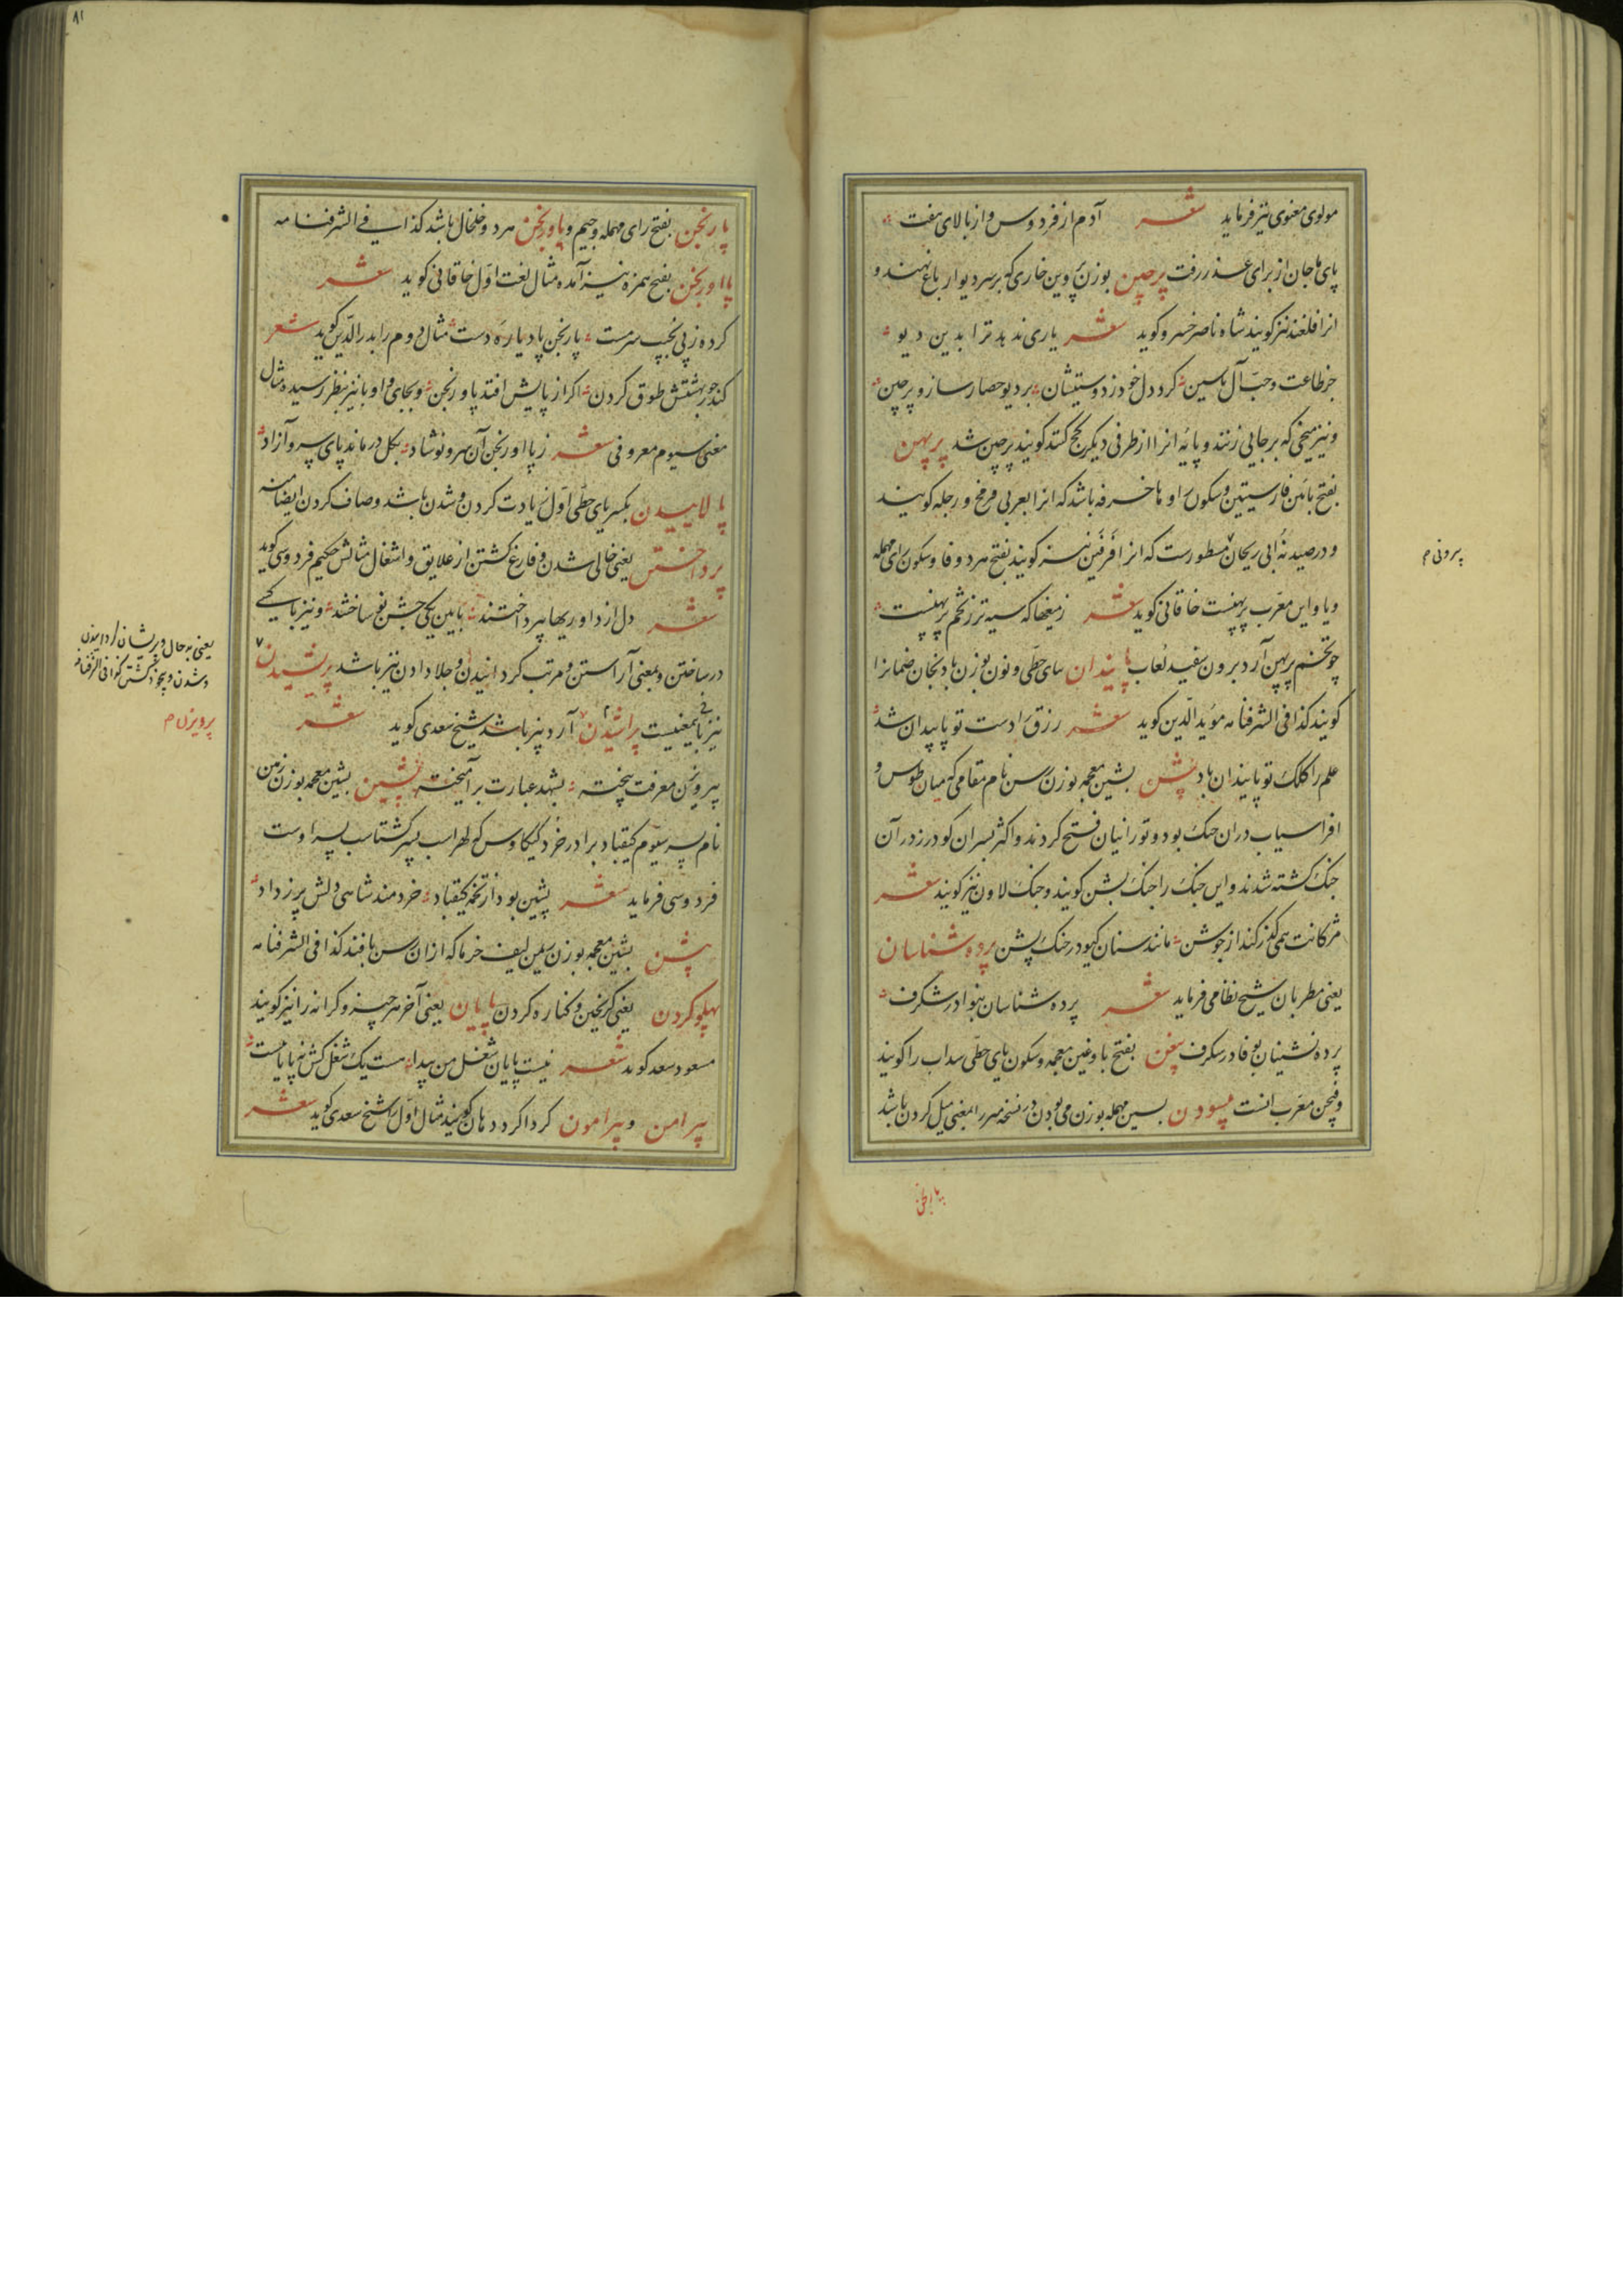 مولوی معنوی نیز فرماید شعر آدم از فردوس و از بالای هفت
پای ماجان از برای عذر رفت پرچین بوزن پروین خاری که بر سر دیوار باغ نهند و
انرا فلغند نیز کویند شاه ناصر خسرو کوید شعر یاری ندهد ترا بدین دیو
جز طاعت و حبّ آل یاسین کرد دل خود ز دوستیشان بر دیو حصار ساز و پرچین
و نیز میخی که بر جایی زنند و پایهٔ انرا از طرفی دیکر کج کنند کویند پرچین شد پرپهن
بفتح بائین فارسیتین و سکون را و ها خرفه باشد که انرا بعربی فرفخ و رجله کویند
و در صیدنهٔ ابی ریحان مسطورست که انرا فرفین نیز کویند بفتح هر دو فا و سکون رای مهمله
و یا و این معرّب پرپهنست خاقانی کوید شعر زمغها که سیه تر ز تخم پرپهنست
چو تخم پرپهن آرد برون سفید لعاب پایندان بیای حطّی و نون بوزن بادنجان ضمانرا
کویند کذا فی الشرفنامه مؤید الدّین کوید شعر رزق را دست تو پایندان شد
علم را کلک تو پایندان باد پشن بشین معجمه بوزن رسن نام مقامی که میان طوس و
افراسیاب دران جنک بود و تورانیان فتح کردند و اکثر پسران کودرز در آن
جنک کشته شدند و این جنک را جنک پشن کویند و جنک لاون نیز کویند شعر
مژکانت همی کذر کند از جوشن مانند سنان کیو در جنک پشن پرده شناسان
یعنی مطربان شیخ نظامی فرماید شعر پرده شناسان بنوا در شکرف
پرده نشینان بوفا در شکرف پیغن بفتح با و غین معجمه و سکون یای حطّی سداب را کویند
و فیجن معرّب انست پسودن بسین مهمله بوزن می بودن در نسخه میرزا بمعنی میل کردن باشد
پیرونی م
پارنجن
پارنجن بفتح رای مهمله و جیم و پاورنجن هر دو خلخال باشد کذا فی الشرفنامه
پااورنجن بفتح همزه نیز آمده مثال لغت اوّل خاقانی کوید شعر
کرده ز پی نجیب سرمست پارنجن پا دیاره دست مثال دوم را بدر الدّین کوید شعر
کند حور بهشتش طوق کردن اکر از پایش افتد پاورنجن و بجای واو با نیز بنظر رسیده و مثال
معنی سیوم معروفی شعر ز پااورنجن آن سرو نوشاد بکل در مانده پای سرو آزاد
پالاییدن بکسر یای حطّی اوّل زیادت کردن و شدن باشد و صاف کردن ایضا منه
پرداختن یعنی خالی شدن و فارغ کشتن از علایق و اشغال مثالش حکیم فردوسی کوید
شعر دل از داوریها بپرداختند بآیین یکی جشن نو ساختند و نیز با کسی
در ساختن و بمعنی آراستن و مرتب کردانیدن و جلا دادن نیز باشد پریشیدن
نیز باینمعنیست پراشیدن آرد بیز باشد شیخ سعدی کوید شعر
پیرویزن معرفت بیخته بشهد عبارت برآمیخته پشین بشین معجمه بوزن زمین
نام پسر سیوم کیقباد برادر خرد کیکاوس که لهراسب پدر کشتاسب پسر اوست
فردوسی فرماید شعر پشین بود از تخمهٔ کیقباد خردمند شاهی دلش پر ز داد
پشن بشین معجمه بوزن رسن لیف خرما که از ان رسن بافند کذا فی الشرفنامه
پهلو کردن یعنی کریختن و کناره کردن پایان یعنی آخر هر چیز و کرانه را نیز کویند
مسعود سعد کوید شعر نیست پایان شغل من پیدا هست یک شغل کش نه پایانست
پیرامن و پیرامون کرداکرد دهان کویند مثال اوّل را شیخ سعدی کوید شعر
یعنی بدحال و پریشان کردانیدن
و شدن و بیخود کشتن کذا فی الشرفنامه
پرویزن م
۸۱